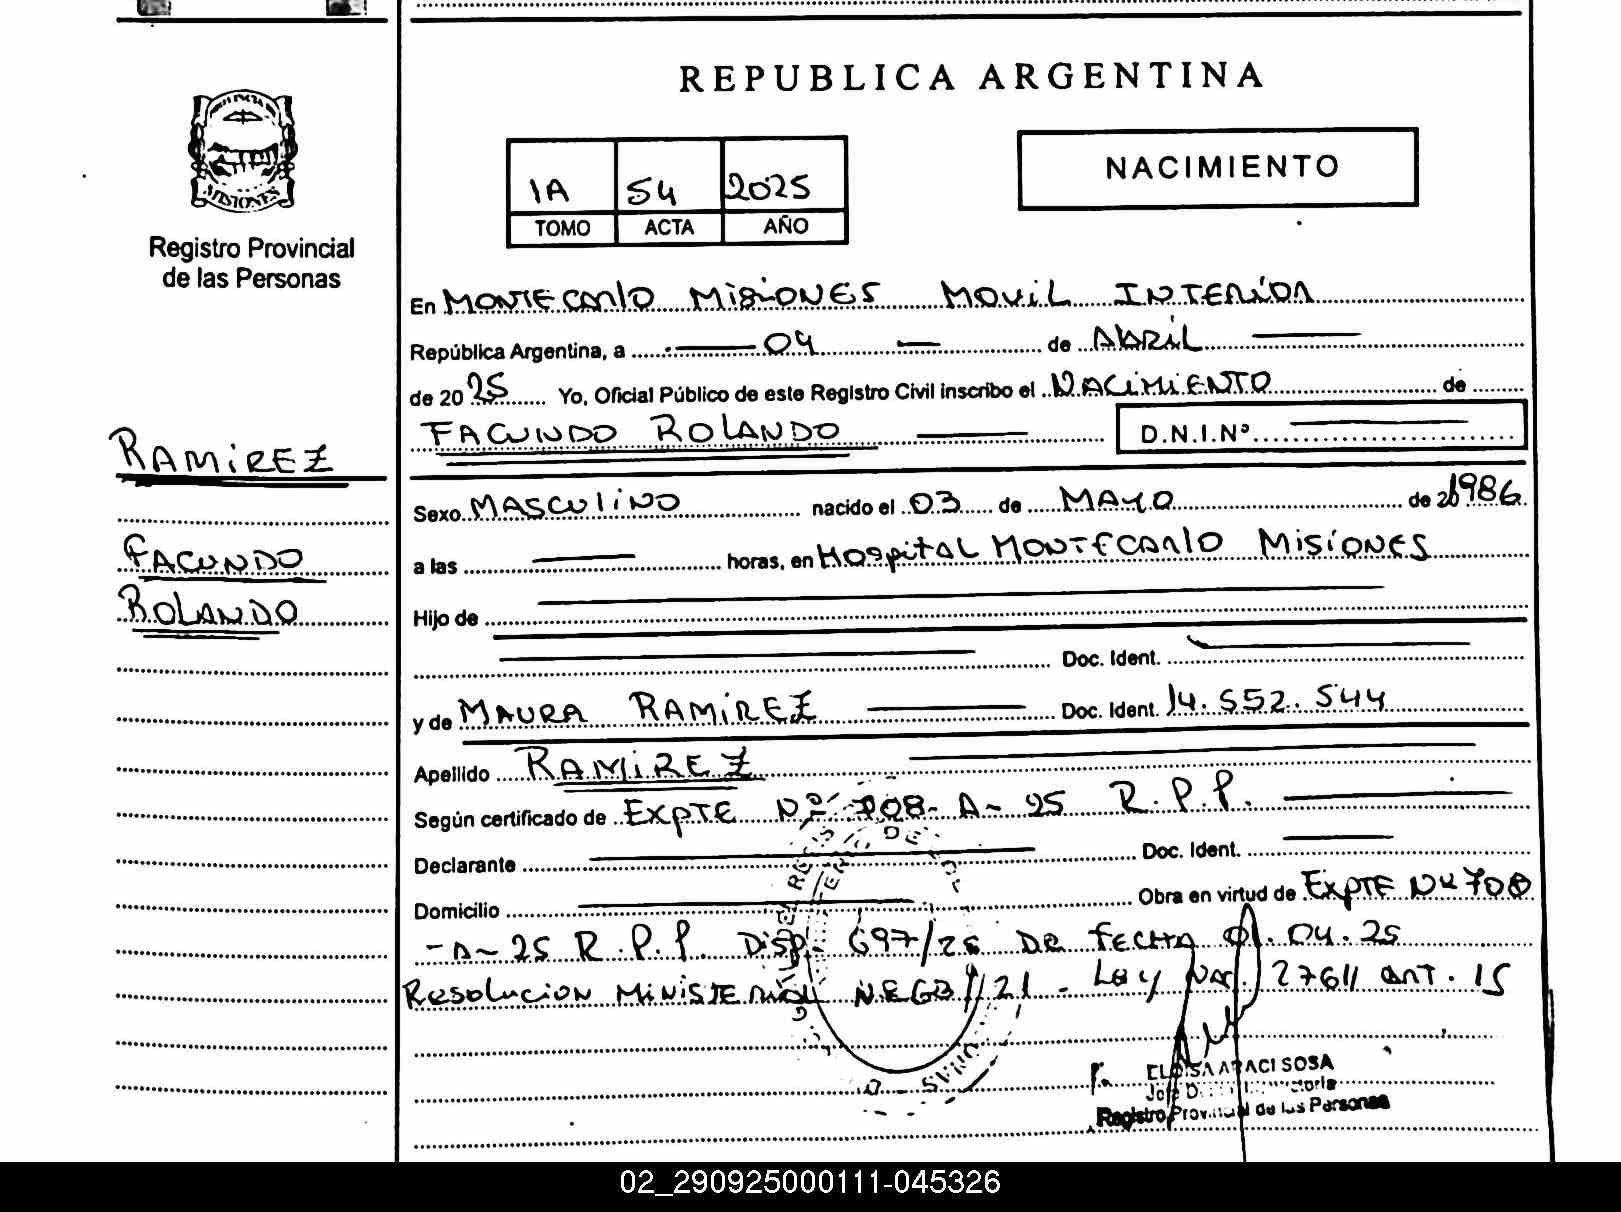 REPUBLICA ARGENTINA
PROVINCIA DE
MISIONES
Registro Provincial
de las Personas
NACIMIENTO
1A 54 2025
TOMO ACTA AÑO
En MONTECARLO MISIONES MOVIL INTERIOR
República Argentina, a 04 de ABRIL
de 2025 Yo, Oficial Público de este Registro Civil inscribo el NACIMIENTO de
FACUNDO ROLANDO D.N.I.Nº
RAMIREZ
FACUNDO
ROLANDO
Sexo MASCULINO nacido el 03 de MAYO de 1986
a las horas, en HOSPITAL MONTECARLO MISIONES
Hijo de
Doc. Ident.
y de MAURA RAMIREZ Doc. Ident. 14.552.544
Apellido RAMIREZ
Según certificado de EXPTE Nº 708-A-25 R.P.P.
Declarante Doc. Ident.
Domicilio Obra en virtud de EXPTE Nº 708
-A-25 R.P.P. DISP. 697/25 DE FECHA 01.04.25
RESOLUCION MINISTERIAL 21 - LEY NAC. 27611 ART. 15
ELOISA ARACI SOSA
Registro Provincial de las Personas
02_290925000111-045326